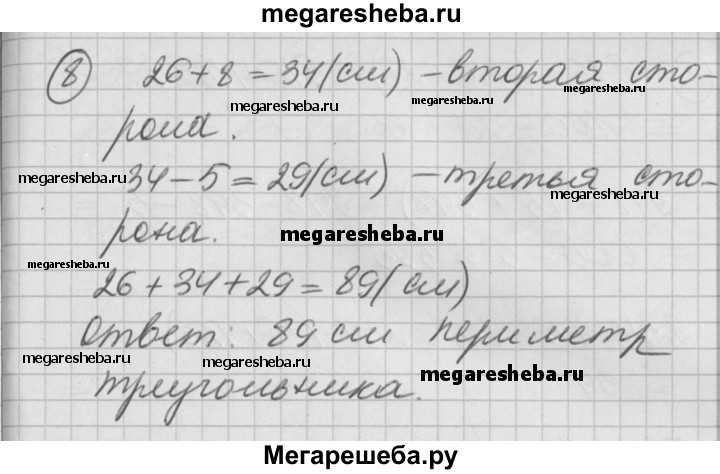 megaresheba.ru
8 26+8=34(см) – вторая сто-
megaresheba.ru
megaresheba.ru
megaresheba.ru
рона.
34–5=29(см) – третья сто-
megaresheba.ru
megaresheba.ru
рона.
megaresheba.ru
megaresheba.ru
26+34+29=89(см)
Ответ: 89 см периметр
megaresheba.ru
megaresheba.ru
megaresheba.ru
треугольника.
Мегарешеба.ру